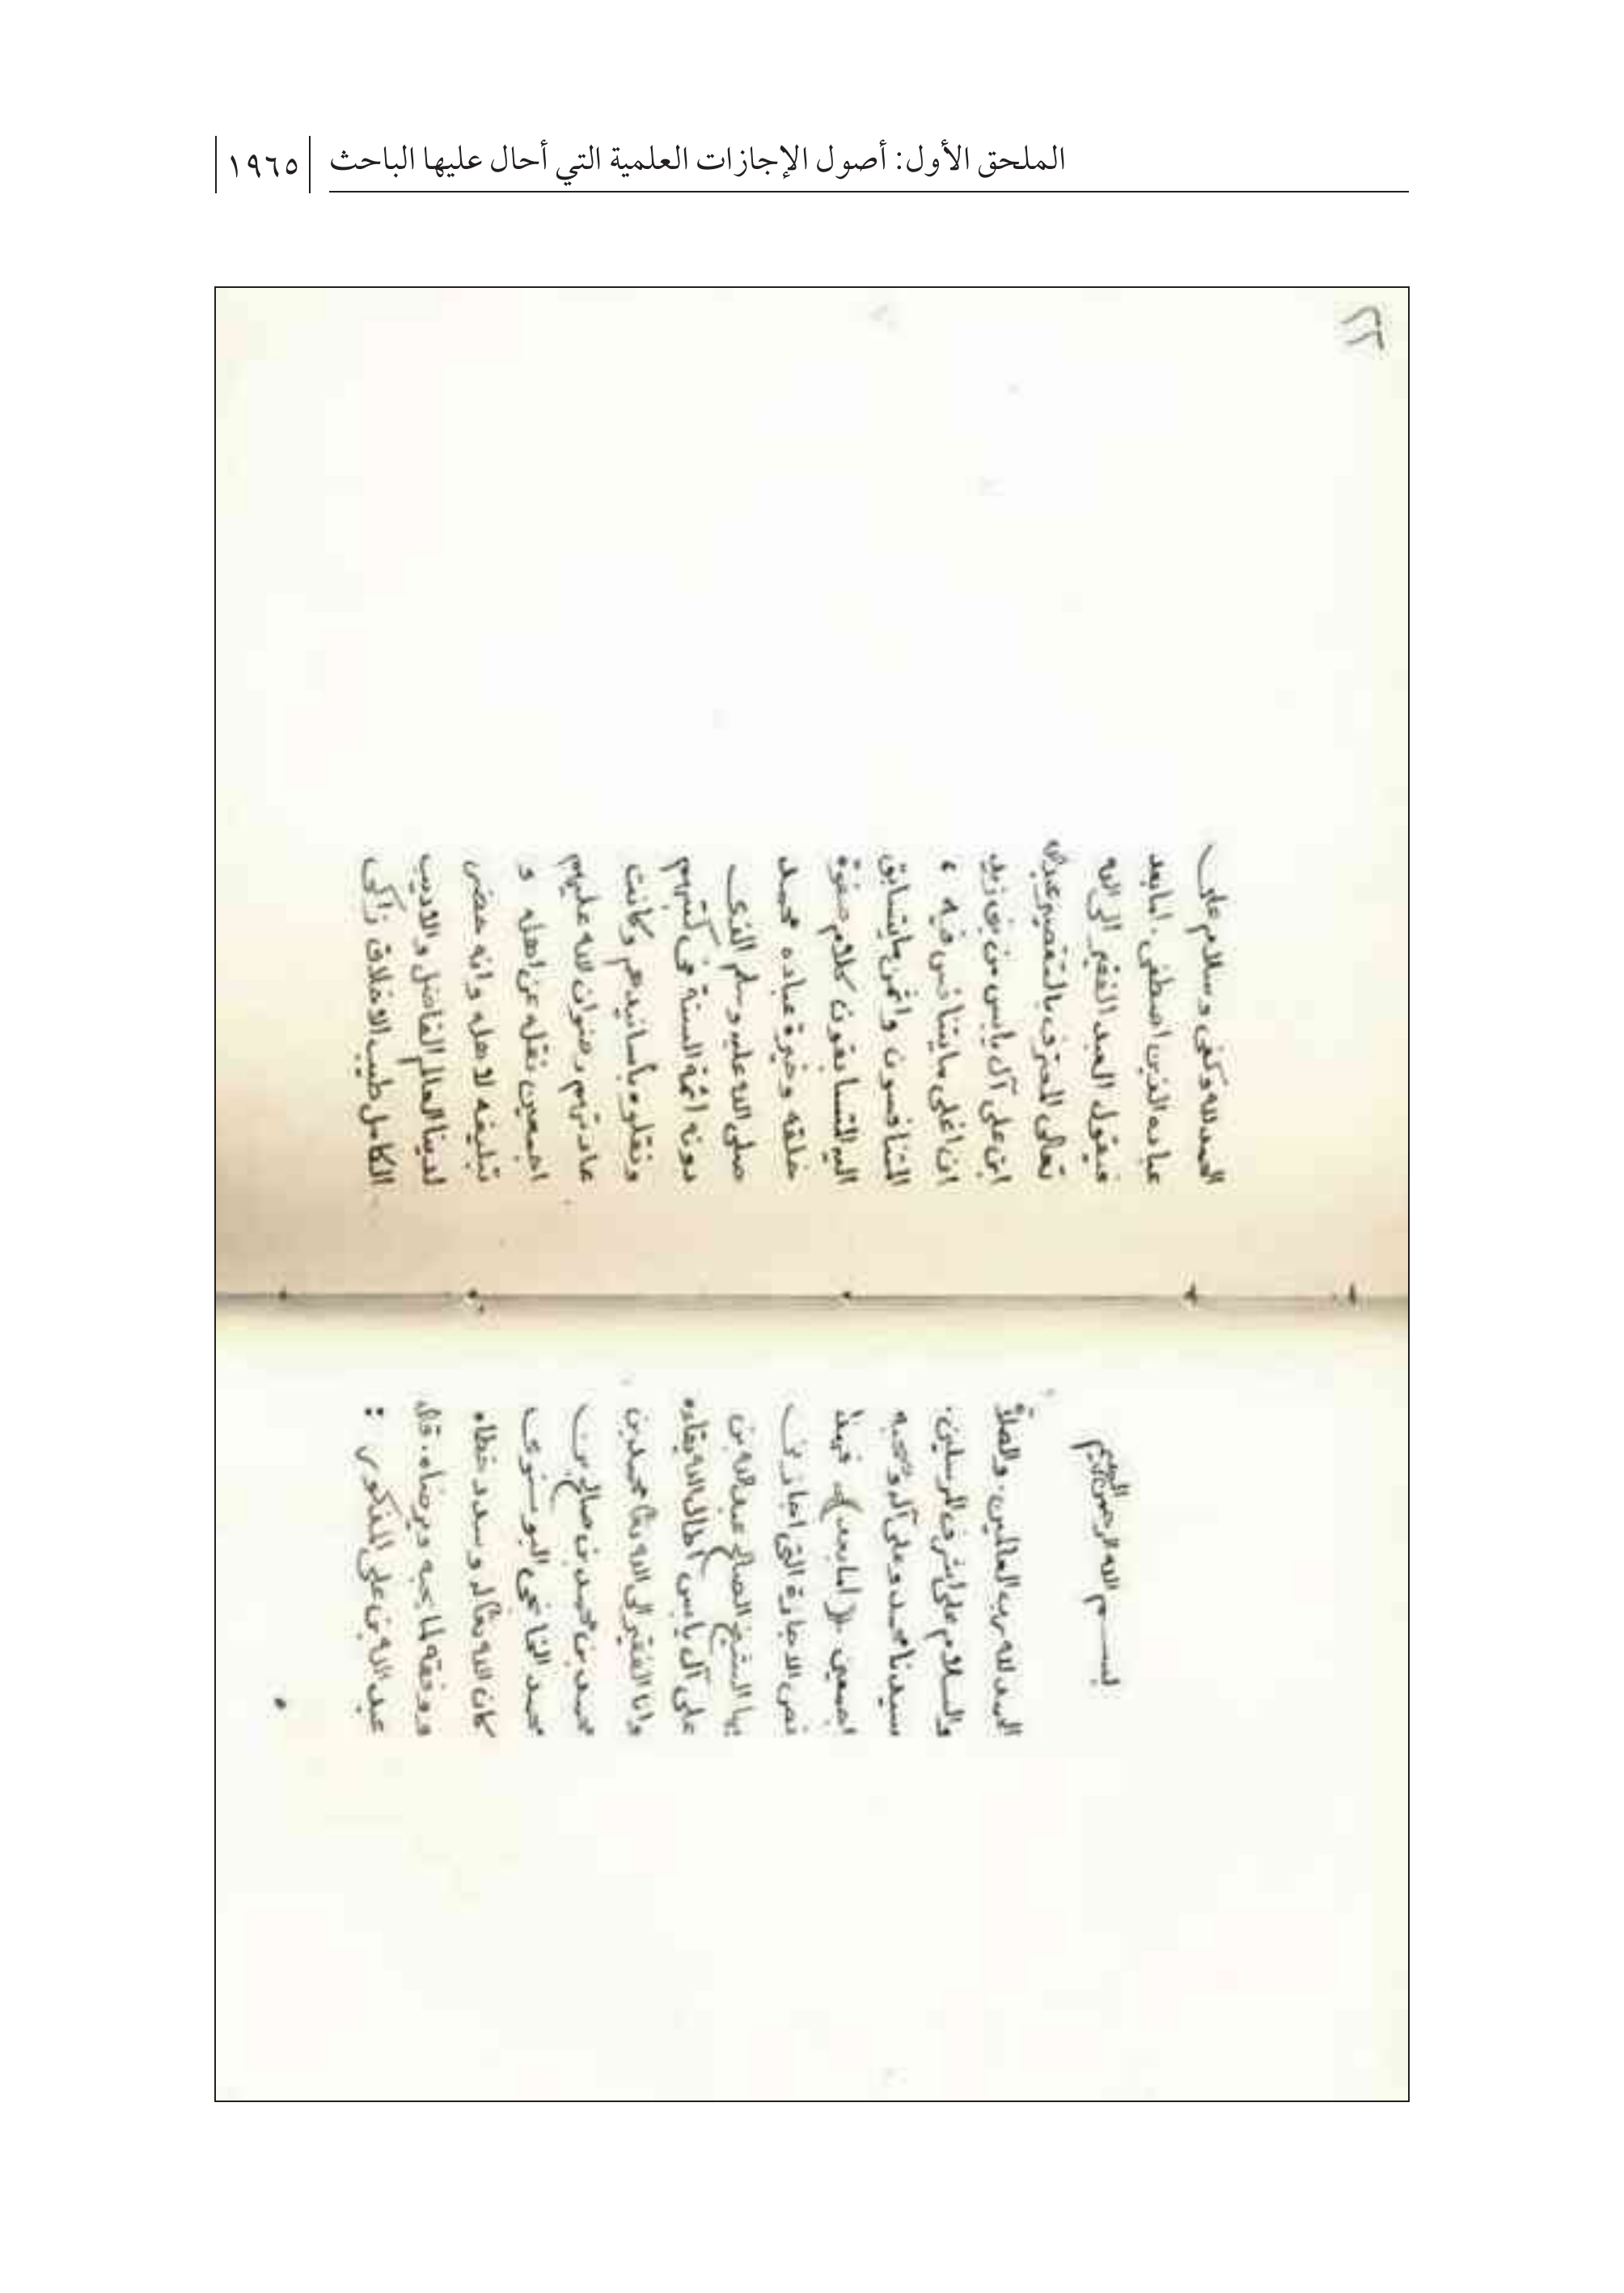 الملحق الأول: أصول الإجازات العلمية التي أحال عليها الباحث
١٩٦٥
٢٢
بسم الله الرحمن الرحيم
الحمد لله رب العالمين. والصلاة
والسلام على اشرف المرسلين.
سيدنا محمد وعلى آله وصحبه
اجمعين (اما بعد) فهذا
نص الاجازة التي اجازني
بها الشيخ الصالح عبدالله بن
على آل يابس أطال الله بقاءه
وانا الفقير الى الله تعالى محمد بن
محمد بن محمد بن صالح بن
محمد البوسنوى
كان الله تعالى له وسدد خطاه
ووفقه لما يحبه ويرضاه. قال
عبد الله بن على المذكور :
الحمد لله وكفى وسلام على
عباده الذين اصطفى. اما بعد
فيقول العبد الفقير الى الله
تعالى المعترف بالتقصير عبدالله
ابن على آل يابس من بنى زيد
ان اغلى ما يتنافس فيه ،
المتنافسون واثمن ما يتسابق
اليه المتسابقون كلام صفوة
خلقه وخيرة عباده محمد
صلى الله عليه وسلم الذى
دونه ائمة السنة فى كتبهم
ونقلوه بأسانيدهم وكانت
عادتهم رضوان الله عليهم
اجمعين نقله عن اهله و
تبليغه لاهله وانه حضر
لدينا العالم الفاضل والاديب
الكامل طيب الاخلاق زاكى